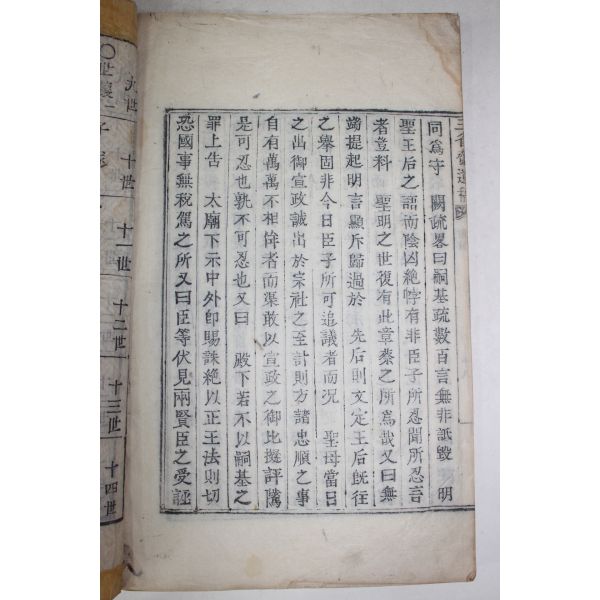 同爲守　闕疏畧曰嗣基疏數百言無非詆毀　明
聖王后之語而陰凶絶悖有非臣子所忍聞所忍言
者豈料　聖明之世復有此章奏之所爲哉又曰無
端提起明言顯斥歸過於　先后則文定王后旣往
之舉固非今日臣子所可追議者而况　聖母當日
之出御宣政誠出於宗社之至計則方諸忠順之事
自有萬萬不相侔者而渠敢以宣政之御比擬評隲
是可忍也孰不可忍也又曰　殿下若不以嗣基之
罪上告　太廟下示中外卽賜誅絶以正王法則切
恐國事無稅駕之所又曰臣等伏見兩賢臣之受誣
九世
十世
十一世
十二世
十三世
十四世